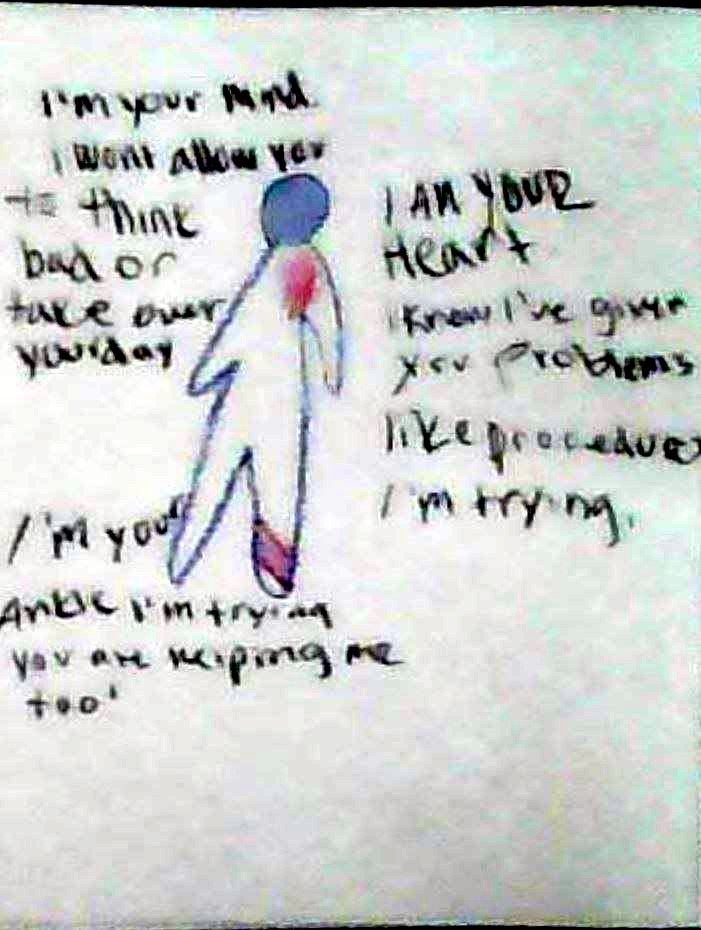 I'm your Mind
I wont allow you
to think
bad or
take over
your day
I AM YOUR
Heart
I know I've given
you problems
like procedures
I'm trying.
I'm your
Ankle I'm trying
you are helping me
too'